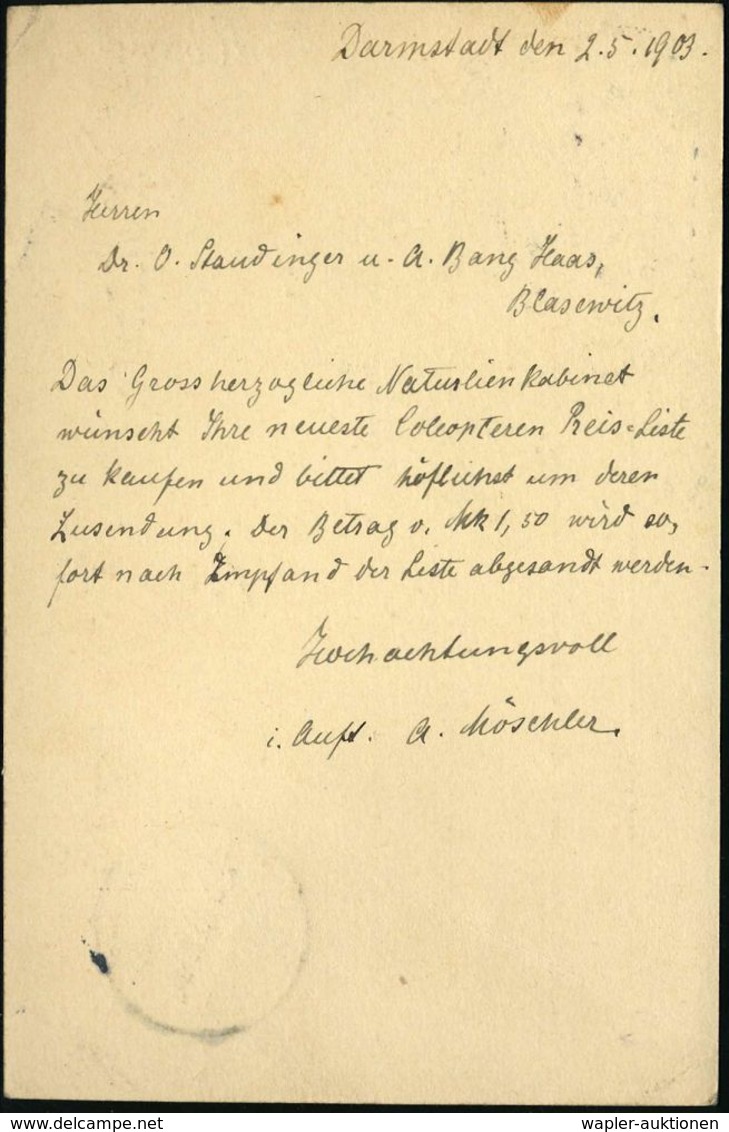 Darmstadt den 2.5.1903.
Herren
Dr. O. Staudinger u. A. Bang Haas,
Blasewitz.
Das Grossherzogliche Naturlienkabinet
wünscht Ihre neueste Coleopteren Preis=Liste
zu kaufen und bittet höflichst um deren
Zusendung. Der Betrag v. Mk 1,50 wird so,
fort nach Empfand der Liste abgesandt werden.
Hochachtungsvoll
i. Auft. A. Möschler.
www.delcampe.net
wapler-auktionen